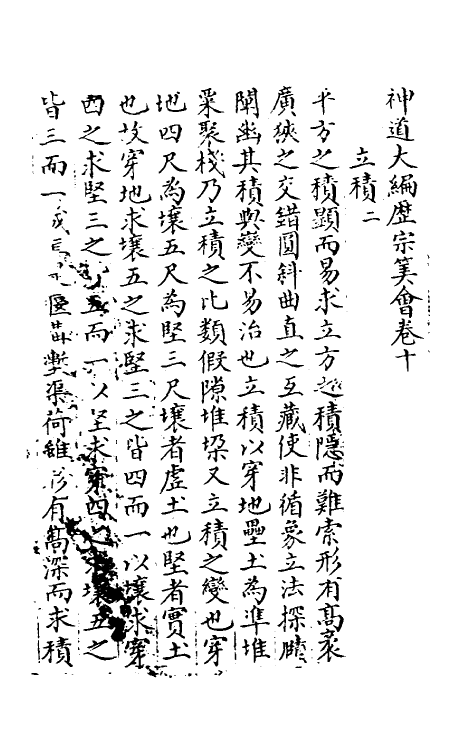 神道大編曆宗筭會卷十
立積二
平方之積顯而易求立方之積隱而難索形有高袤
廣狹之交錯圓斜曲直之互藏使非循象立法探賾
闡幽其積與變不易治也立積以穿地壘土為準堆
粟聚棧乃立積之比類假隙堆垜又立積之變也穿
地四尺為壤五尺為堅三尺壤者虛土也堅者實土
也故穿地求壤五之求堅三之皆四而一以壤求穿
四之求堅三之皆五而一以堅求穿四之求壤五之
皆三而一城垣堤塹渠荷雖形有高深而求積